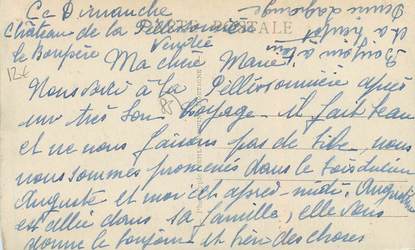 Ce Dimanche
Château de la Pellissonnière
le Boupère Vendée
CARTE POSTALE
Ma chère Marie
Nous voici à la Pellissonnière après
un très bon voyage. il fait beau
et ne nous faisons pas de bile, nous
nous sommes promenés dans le bois
Auguste et moi cet après-midi. Augustine
est allée dans sa famille, elle vous
donne le bonjour et bien des choses
12€
85
Bonjour à
et à